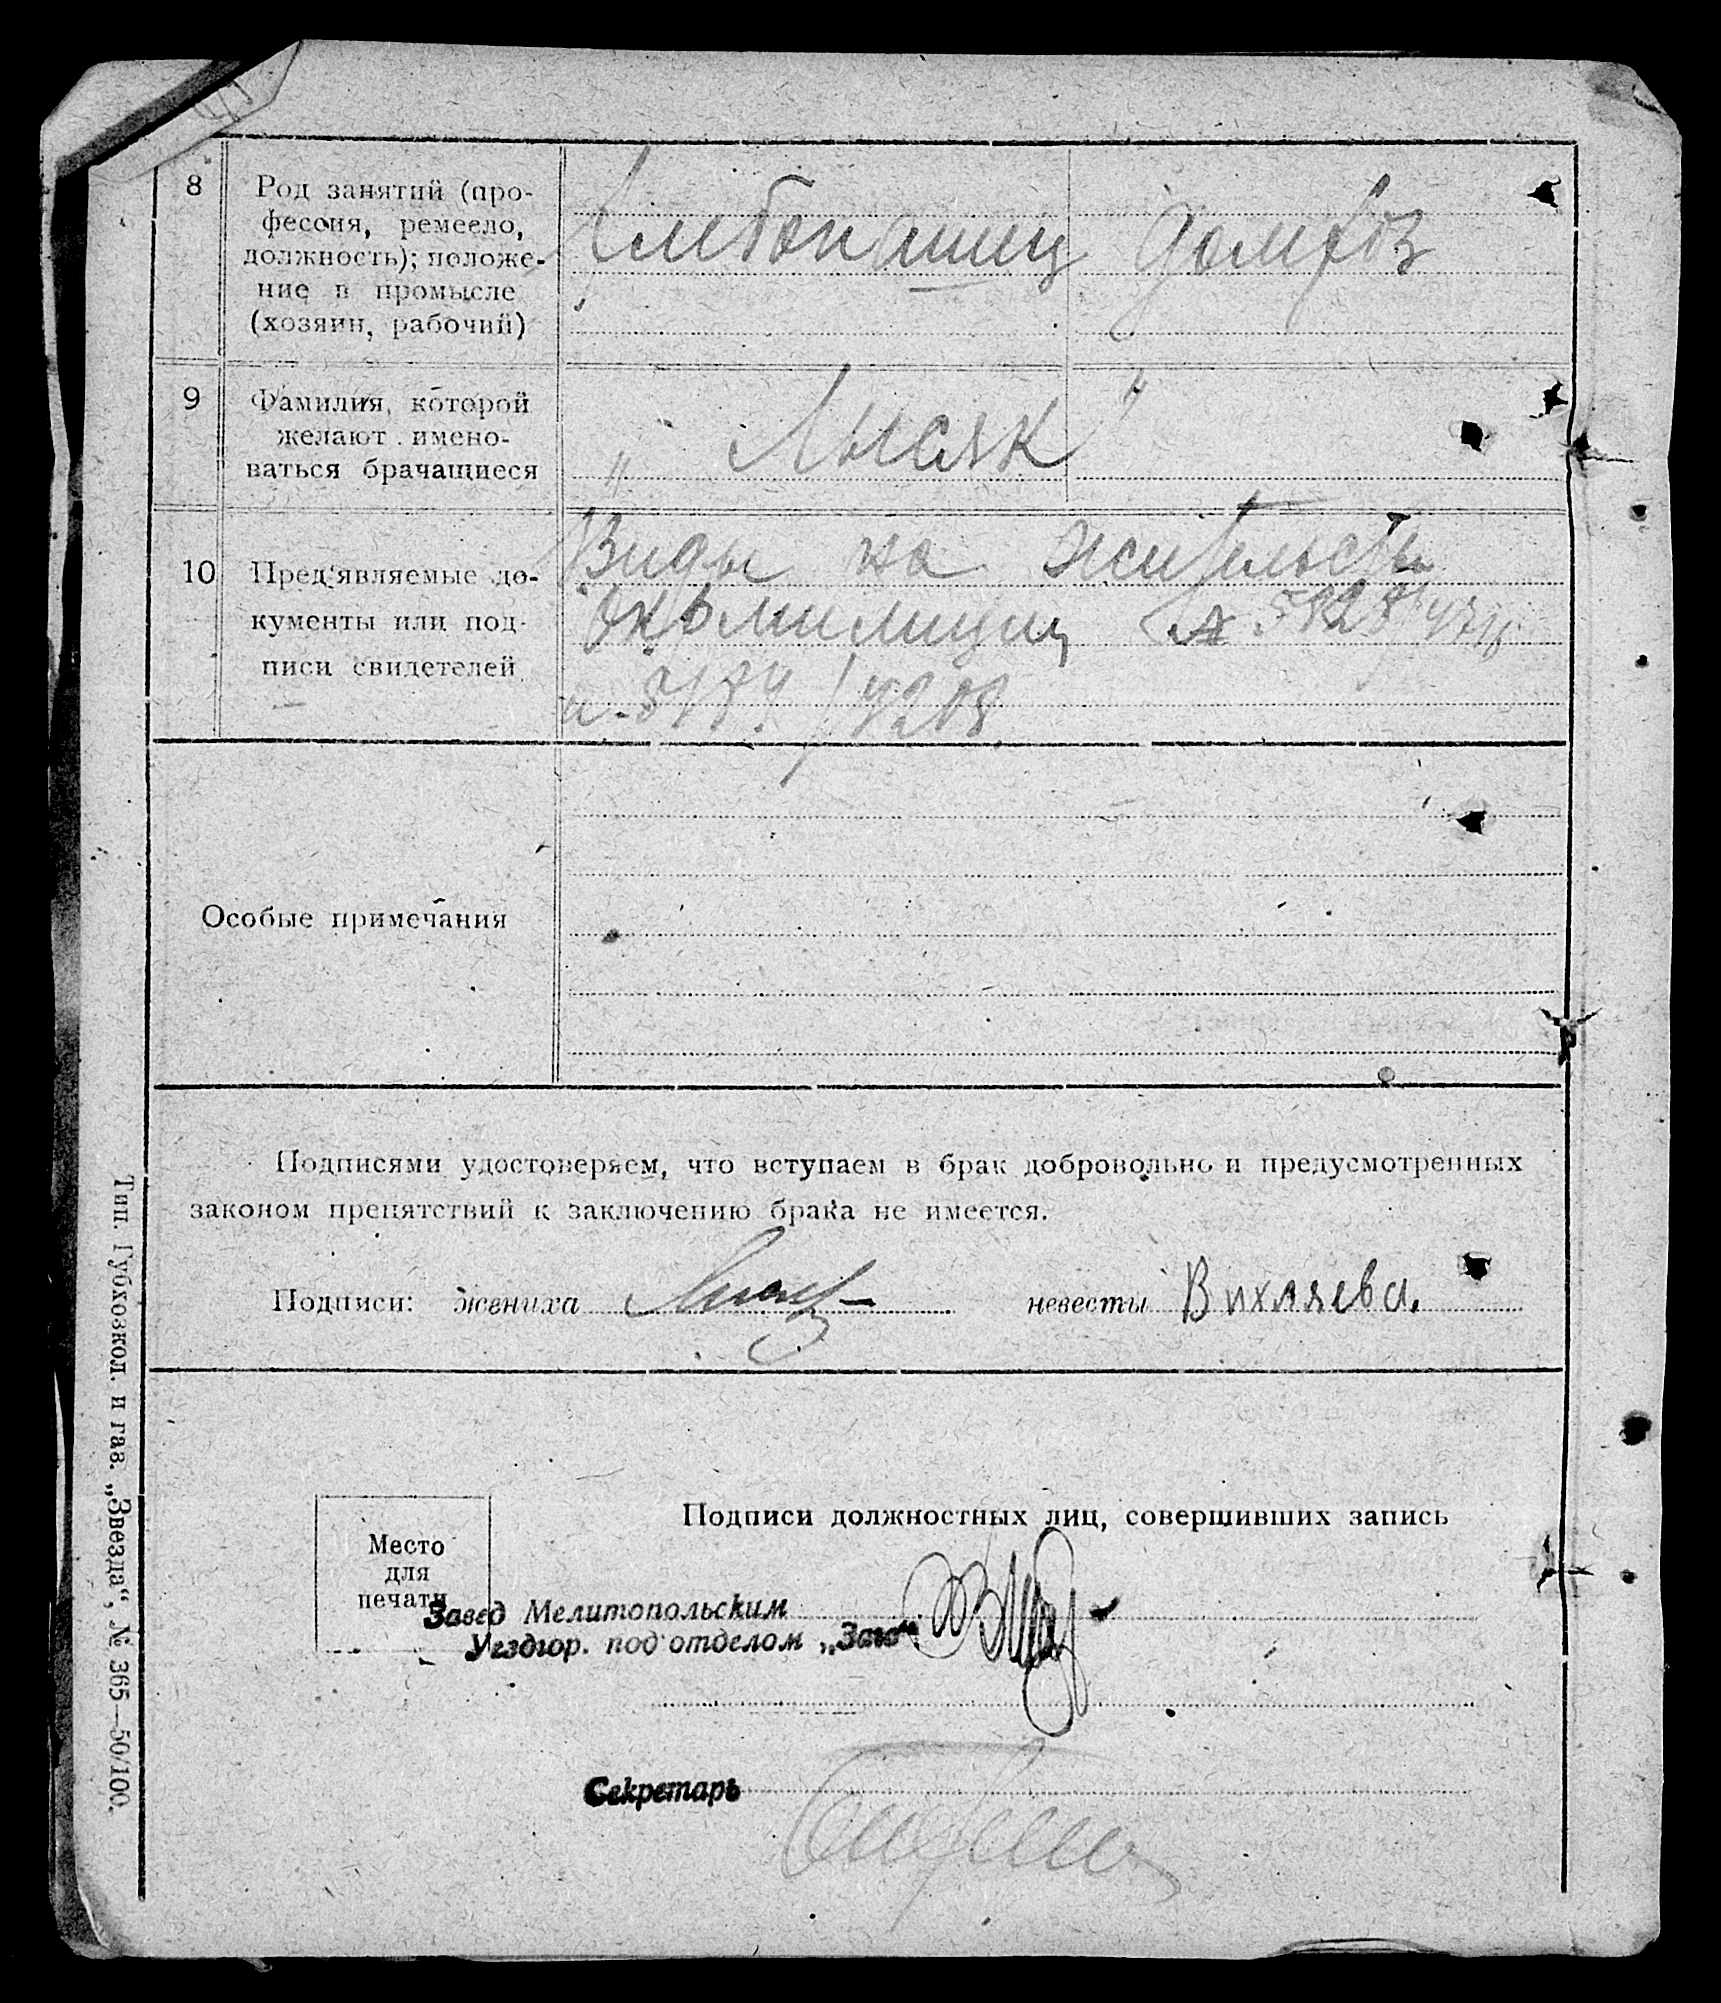 8
Род занятий (про-
фессия, ремесло,
должность); положе-
ние в промысле
(хозяин, рабочий)
Хлебопашец
домхоз
9
Фамилия, которой
желают имено-
ваться брачащиеся
„Лысяк"
10
Пред'являемые до-
кументы или под-
писи свидетелей
Виды на жительство
Окрмилиции №
и 5174/4208
Особые примечания
Подписями удостоверяем, что вступаем в брак добровольно и предусмотренных
законом препятствий к заключению брака не имеется.
Подписи: жениха невесты Вихляева.
Подписи должностных лиц, совершивших запись
Место
для
печати
Завед Мелитопольским
Уездгор. под'отделом „Загс"
Секретарь
Тип. Губхозкол. и газ. „Звезда", № 365—50/100.